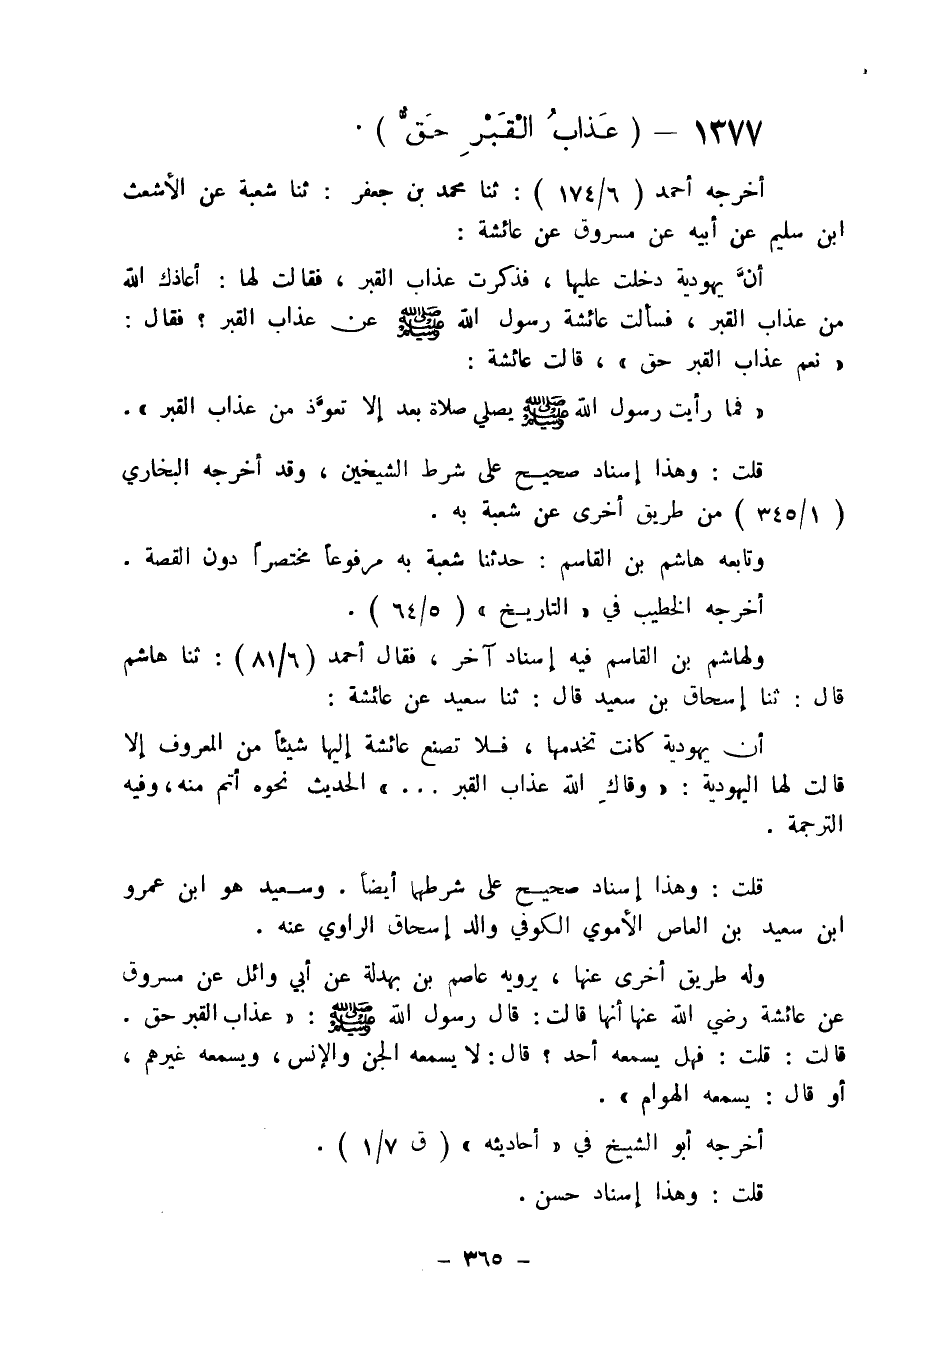 ١٣٧٧ – ( عَذابُ الْقَبْرِ حَقٌّ ) .
أخرجه أحمد ( ١٧٤/٦ ) : ثنا محمد بن جعفر : ثنا شعبة عن الأشعث
ابن سليم عن أبيه عن مسروق عن عائشة :
أنَّ يهودية دخلت عليها ، فذكرت عذاب القبر ، فقالت لها : أعاذك الله
من عذاب القبر ، فسألت عائشة رسول الله ﷺ عن عذاب القبر ؟ فقال :
« نعم عذاب القبر حق » ، قالت عائشة :
« فما رأيت رسول الله ﷺ يصلي صلاة بعد إلا تعوَّذ من عذاب القبر » .
قلت : وهذا إسناد صحيح على شرط الشيخين ، وقد أخرجه البخاري
( ٣٤٥/١ ) من طريق أخرى عن شعبة به .
وتابعه هاشم بن القاسم : حدثنا شعبة به مرفوعاً مختصراً دون القصة .
أخرجه الخطيب في « التاريخ » ( ٦٤/٥ ) .
ولهاشم بن القاسم فيه إسناد آخر ، فقال أحمد ( ٨١/٦ ) : ثنا هاشم
قال : ثنا إسحاق بن سعيد قال : ثنا سعيد عن عائشة :
أن يهودية كانت تخدمها ، فلا تصنع عائشة إليها شيئاً من المعروف إلا
قالت لها اليهودية : « وقاكِ الله عذاب القبر ... » الحديث نحوه أتم منه ، وفيه
الترجمة .
قلت : وهذا إسناد صحيح على شرطهما أيضاً . وسعيد هو ابن عمرو
ابن سعيد بن العاص الأموي الكوفي والد إسحاق الراوي عنه .
وله طريق أخرى عنها ، يرويه عاصم بن بهدلة عن أبي وائل عن مسروق
عن عائشة رضي الله عنها أنها قالت : قال رسول الله ﷺ : « عذاب القبر حق .
قالت : قلت : فهل يسمعه أحد ؟ قال : لا يسمعه الجن والإنس ، ويسمعه غيرهم ،
أو قال : يسمعه الهوام » .
أخرجه أبو الشيخ في « أحاديثه » ( ق ١/٧ ) .
قلت : وهذا إسناد حسن .
– ٣٦٥ –